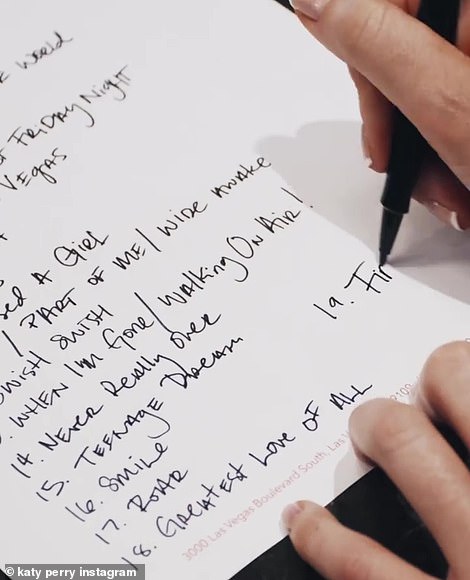 World
Friday Night
Vegas
A Girl
/ Part of Me / Wide Awake
Swish Swish
When I'm Gone / Walking On Air!
14. Never Really Over
15. Teenage Dream
16. Smile
17. Roar
18. Greatest Love of All
19. Fir
3000 Las Vegas Boulevard South, Las V
© katy perry instagram